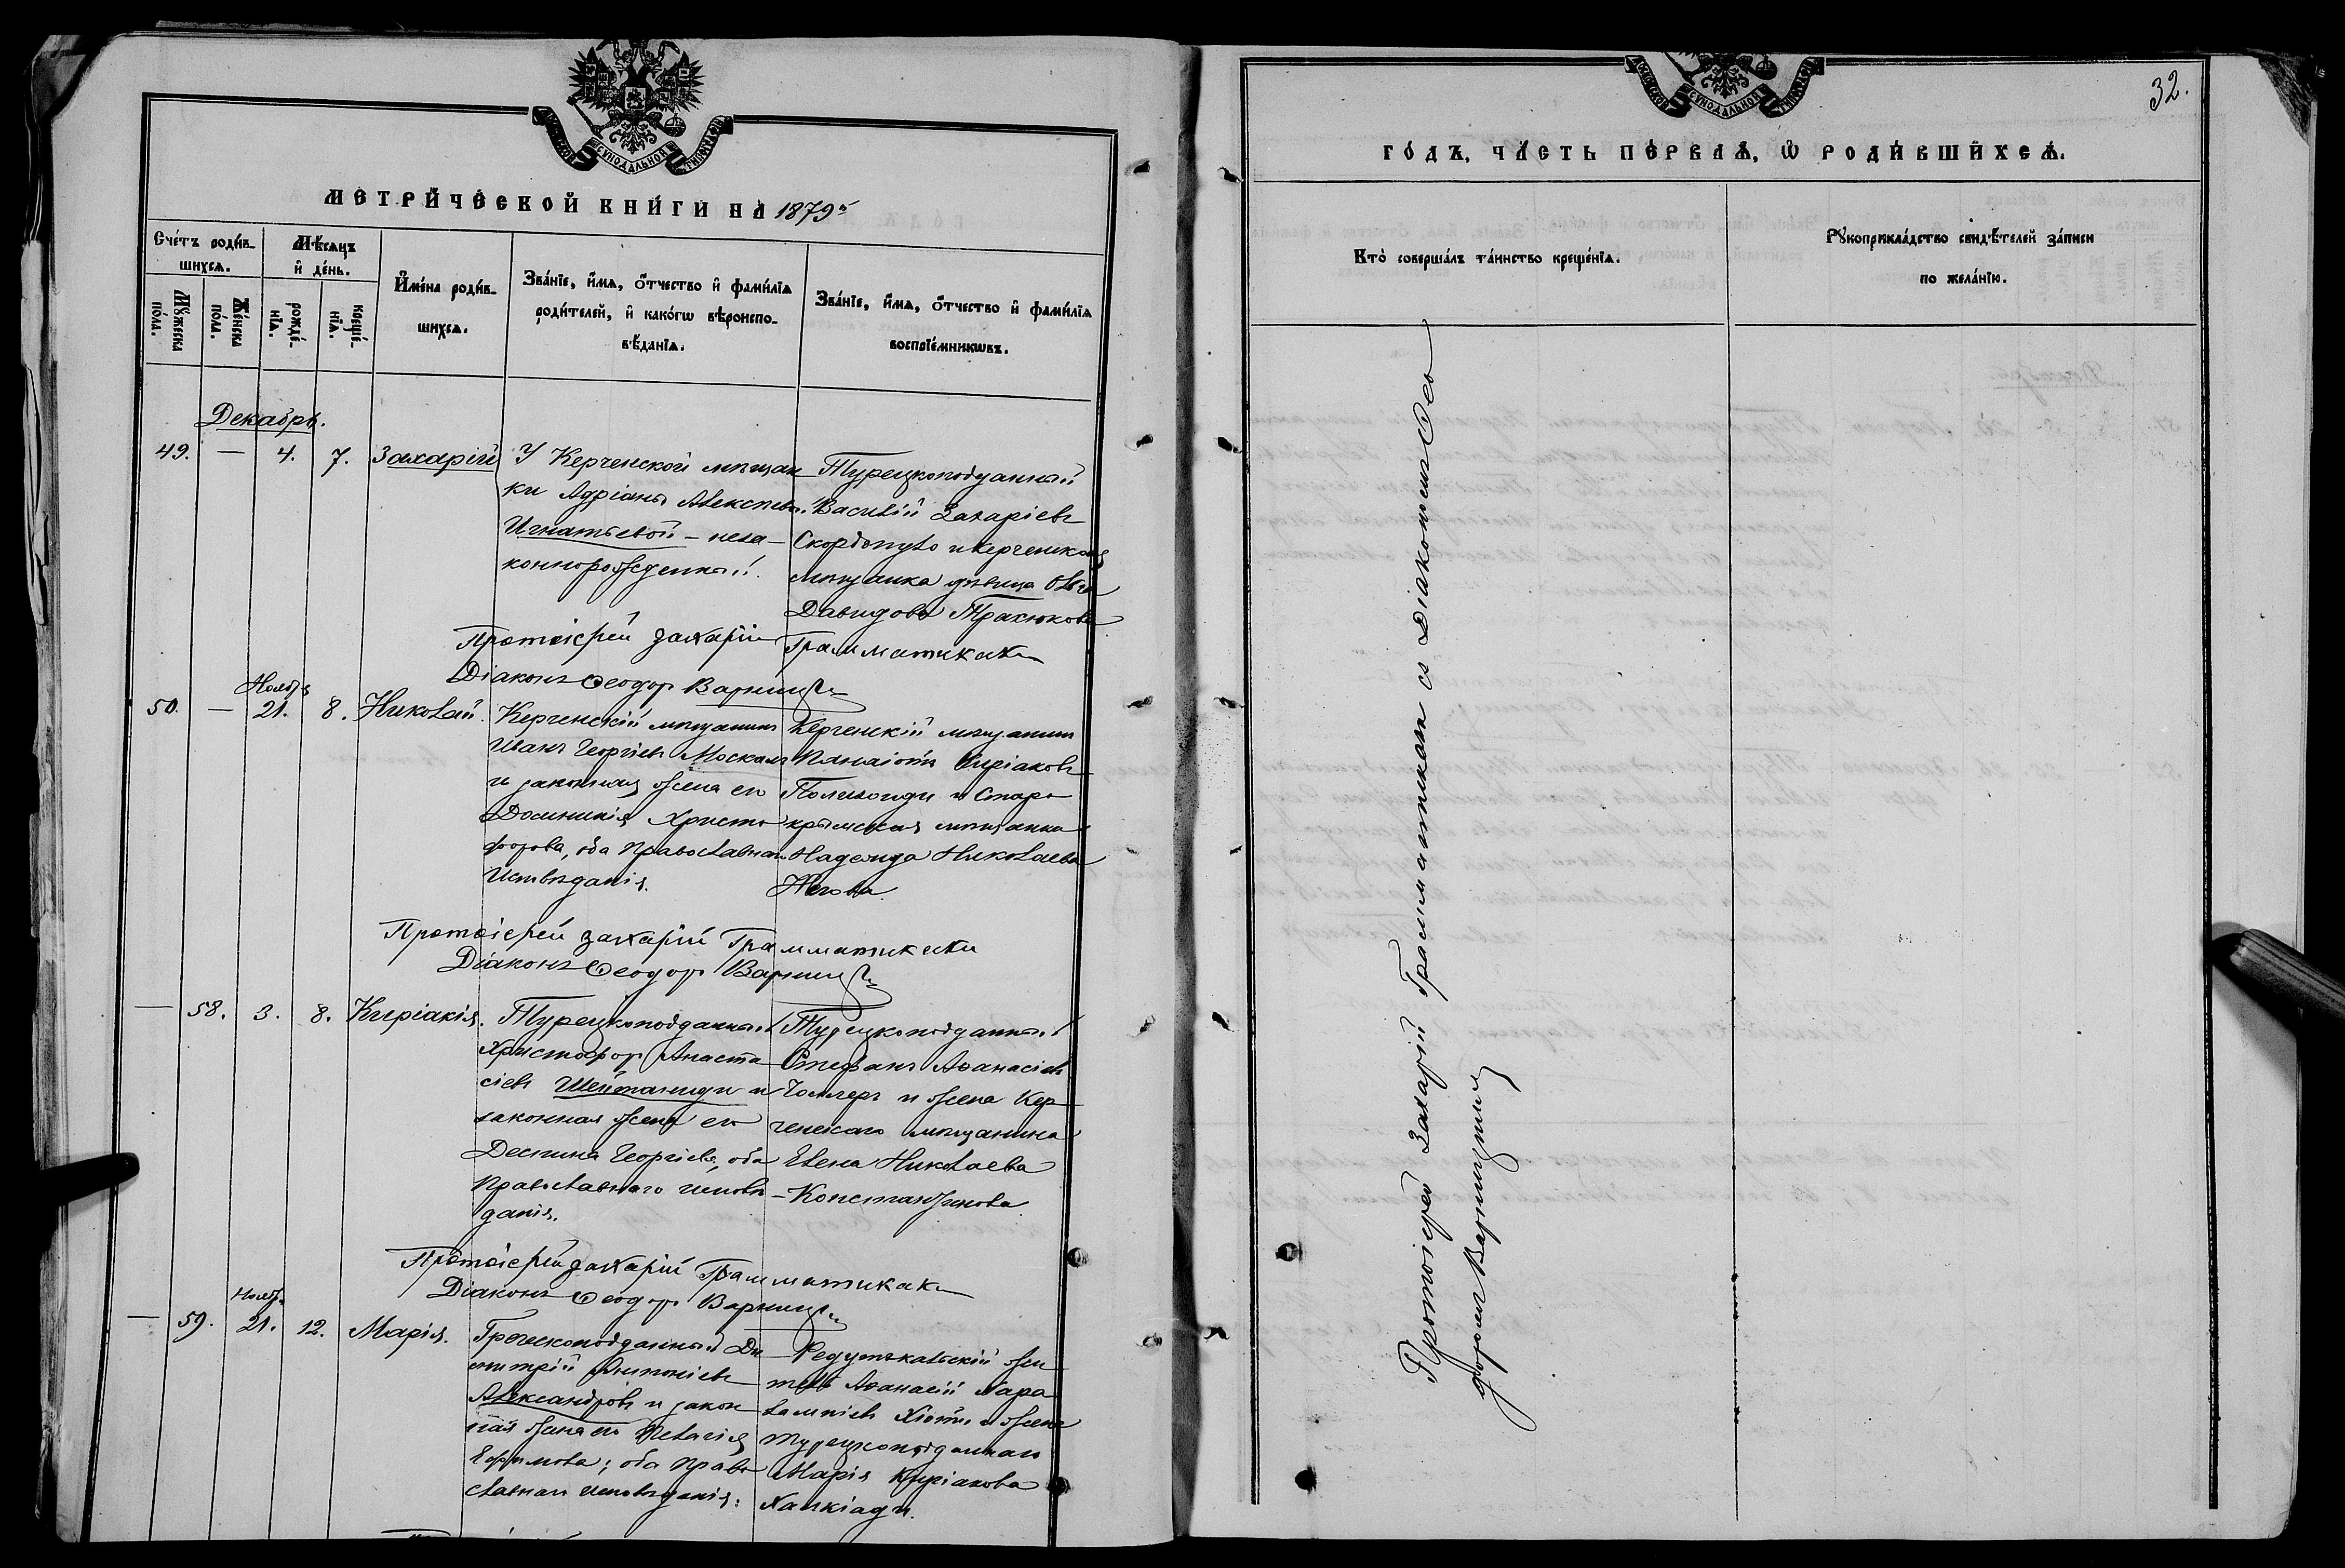 МОСКОВСКОЙ СѴНОДАЛЬНОЙ ТИПОГРАФIИ
МЕТРИ́ЧЕСКОЙ КНИ́ГИ НА 1879й
Сче́тъ роди́в-
шихсѧ.
Мѣ́сѧцъ
и҆ де́нь.
И҆мена̀ роди́в-
шихсѧ.
Зва́нїе, и҆́мѧ, ѻ҆́тчество и҆ фами́лїѧ
роди́телей, и҆ како́гѡ вѣроиспо-
вѣ́данїѧ.
Зва́нїе, и҆́мѧ, ѻ҆́тчество и҆ фами́лїѧ
воспрїе́мникѡвъ.
Мꙋ́жеска
по́ла.
Же́нска
по́ла.
рожде́-
нїѧ.
креще́-
нїѧ.
Декабрь.
49. — 4. 7. Захарій
У Керченской мѣщан
ки Адріаны Алексѣев.
Игнатьевой – неза-
коннорожденный.
Турецкоподданный
Василій Захаріевъ
Скордопуло и Керченская
мѣщанка дѣвица Ольга
Давидова
Протоіерей Захарій Грамматикати
Діаконъ Ѳеодоръ
50. — Ноября 21. 8. Николай.
Керченскій мѣщанинъ
Иванъ Георгіевъ Москали
и законная жена его
Домникія Христо
форова, оба Православнаго
Исповѣданія.
Керченскій мѣщанинъ
Панаіотъ Киріаковъ
и Старо
крымская мѣщанка
Надежда Николаева
Протоіерей Захарій Грамматикати
Діаконъ Ѳеодоръ
— 58. 3. 8. Киріакія.
Турецкоподданный
Христофоръ Анаста
сіевъ Шейтаниди и
законная жена его
Деспина Георгіева, оба
Православнаго исповѣ-
данія.
Турецкоподданный
Стефанъ Аѳанасіевъ
и жена Кер
ченскаго мѣщанина
Елена Николаева
Константинова
Протоіерей Захарій Грамматикати
Діаконъ Ѳеодоръ
— 59. Ноябр. 21. 12. Марія.
Греческоподданный Ди
митрій Антоніевъ
Александровъ и закон
ная жена его Пелагія
Ефимова; оба право
славнаго исповѣданія.
Редуткальскій жи
тель Аѳанасій Хара
лампіевъ и жена
турецкоподданнаго
Марія Киріакова
32.
МОСКОВСКОЙ СѴНОДАЛЬНОЙ ТИПОГРАФIИ
ГО́ДЪ, ЧА́СТЬ ПЕ́РВАѦ, Ѡ РОДИ́ВШИХСѦ.
Кто̀ соверша́лъ та́инство креще́нїѧ.
Рꙋкоприкла́дство свидѣ́телей за́писи
по жела́нїю.
Протоіерей Захарій Грамматикати съ Діакономъ Ѳео
доромъ